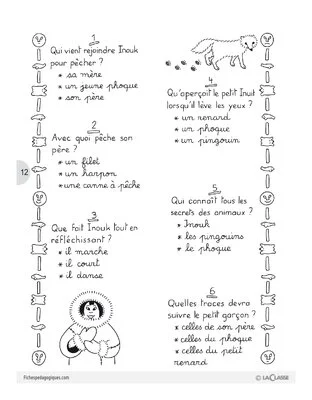 1
Qui vient rejoindre Inouk
pour pêcher ?
* sa mère
* un jeune phoque
* son père
2
Avec quoi pêche son
père ?
* un filet
* un harpon
* une canne à pêche
3
Que fait Inouk tout en
réfléchissant ?
* il marche
* il court
* il danse
4
Qu'aperçoit le petit Inuit
lorsqu'il lève les yeux ?
* un renard
* un phoque
* un pingouin
5
Qui connaît tous les
secrets des animaux ?
* Inouk
* les pingouins
* le phoque
6
Quelles traces devra
suivre le petit garçon ?
* celles de son père
* celles du phoque
* celles du petit
renard
12
Fichespedagogiques.com
© LACLASSE